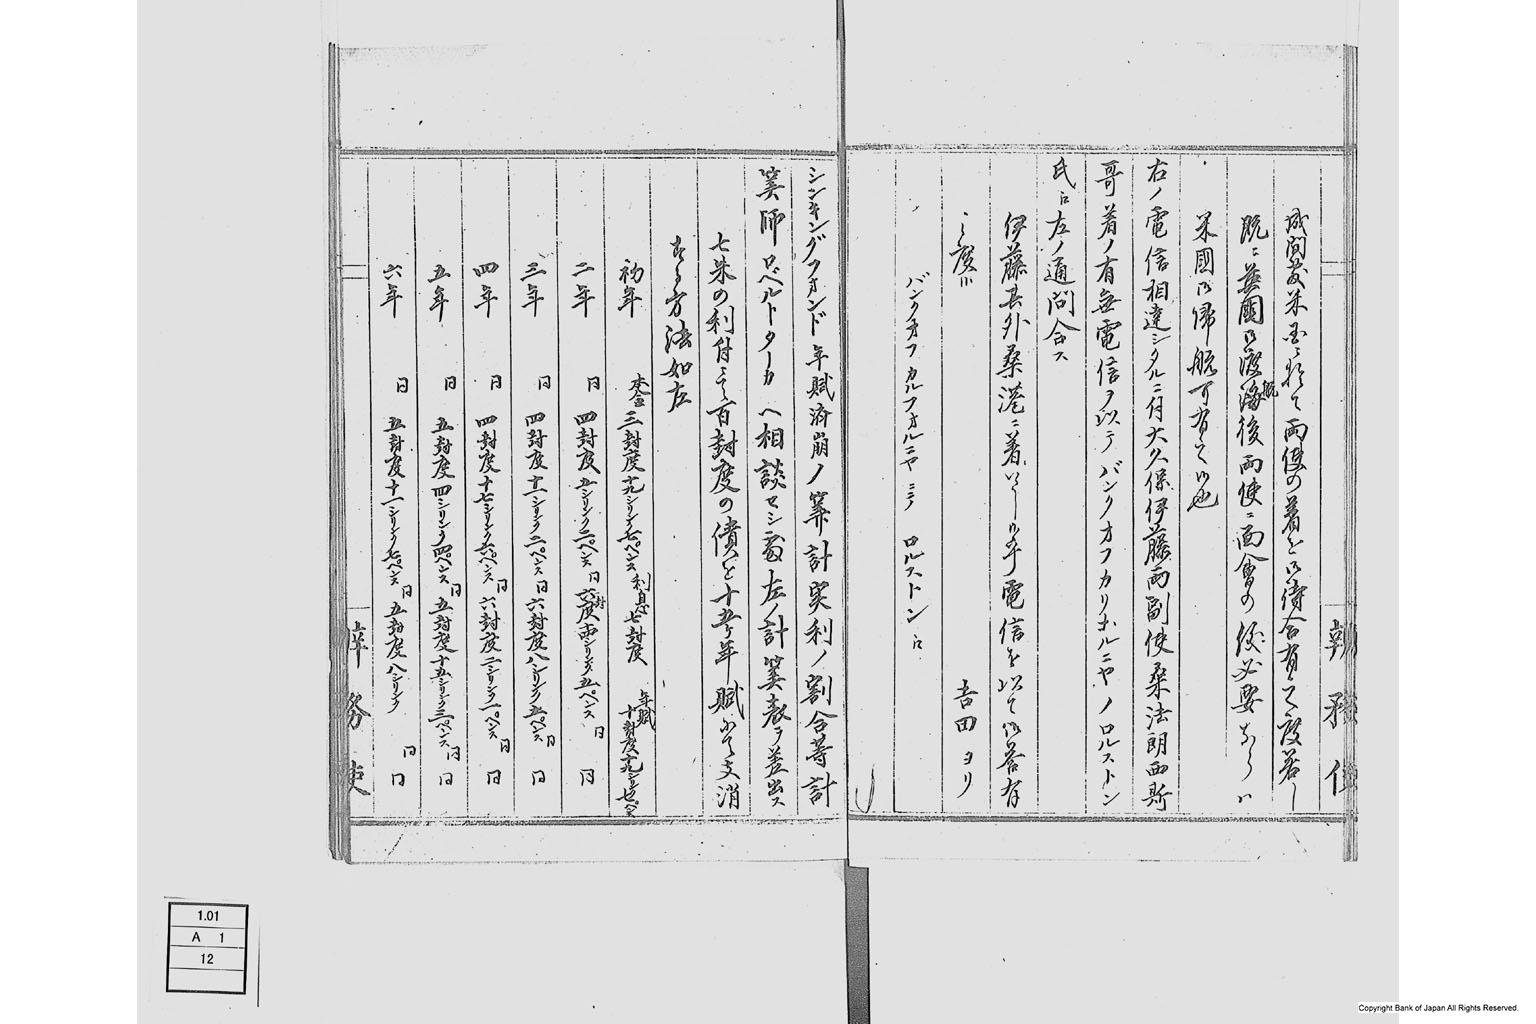 成間敷米国ニ於て両使の着を御待合有之度若し
既ニ英國御渡海後両使ニ面會の後必要あらハ
米國御帰航可有之候也
右ノ電信相達シタルニ付大久保伊藤両副使桑法朗西斯
哥着ノ有無電信ヲ以テバンクオフカリホルニヤノロルストン
氏江左ノ通問合ス
伊藤其外桑港ニ着いたし候乎電信を以て御答有
之度候
吉田ヨリ
バンクオフカルフオルニヤニテ ロルストン江
シンキングフオンド年賦済崩ノ算計実利ノ割合等計
算師ロベルトターカへ相談セシ處左ノ計算表ヲ差出ス
七朱の利付にて百封度の債を十五ヶ年賦にて支消
する方法如左
初年 本金三封度十九シリング七ペンス 利息七封度 年賦十封度十九シリング七ペンス
二年 同四封度五シリング二ペンス 同六封度十四シリング五ペンス 同 同
三年 同四封度十一シリング二ペンス 同六封度八シリング五ペンス 同 同
四年 同四封度十七シリング六ペンス 同六封度二シリング一ペンス 同 同
五年 同五封度四シリング四ペンス 同五封度十五シリング三ペンス 同 同
六年 同五封度十一シリング七ペンス 同五封度八シリング 同 同
辨務使
1.01
A 1
12
Copyright Bank of Japan All Rights Reserved.